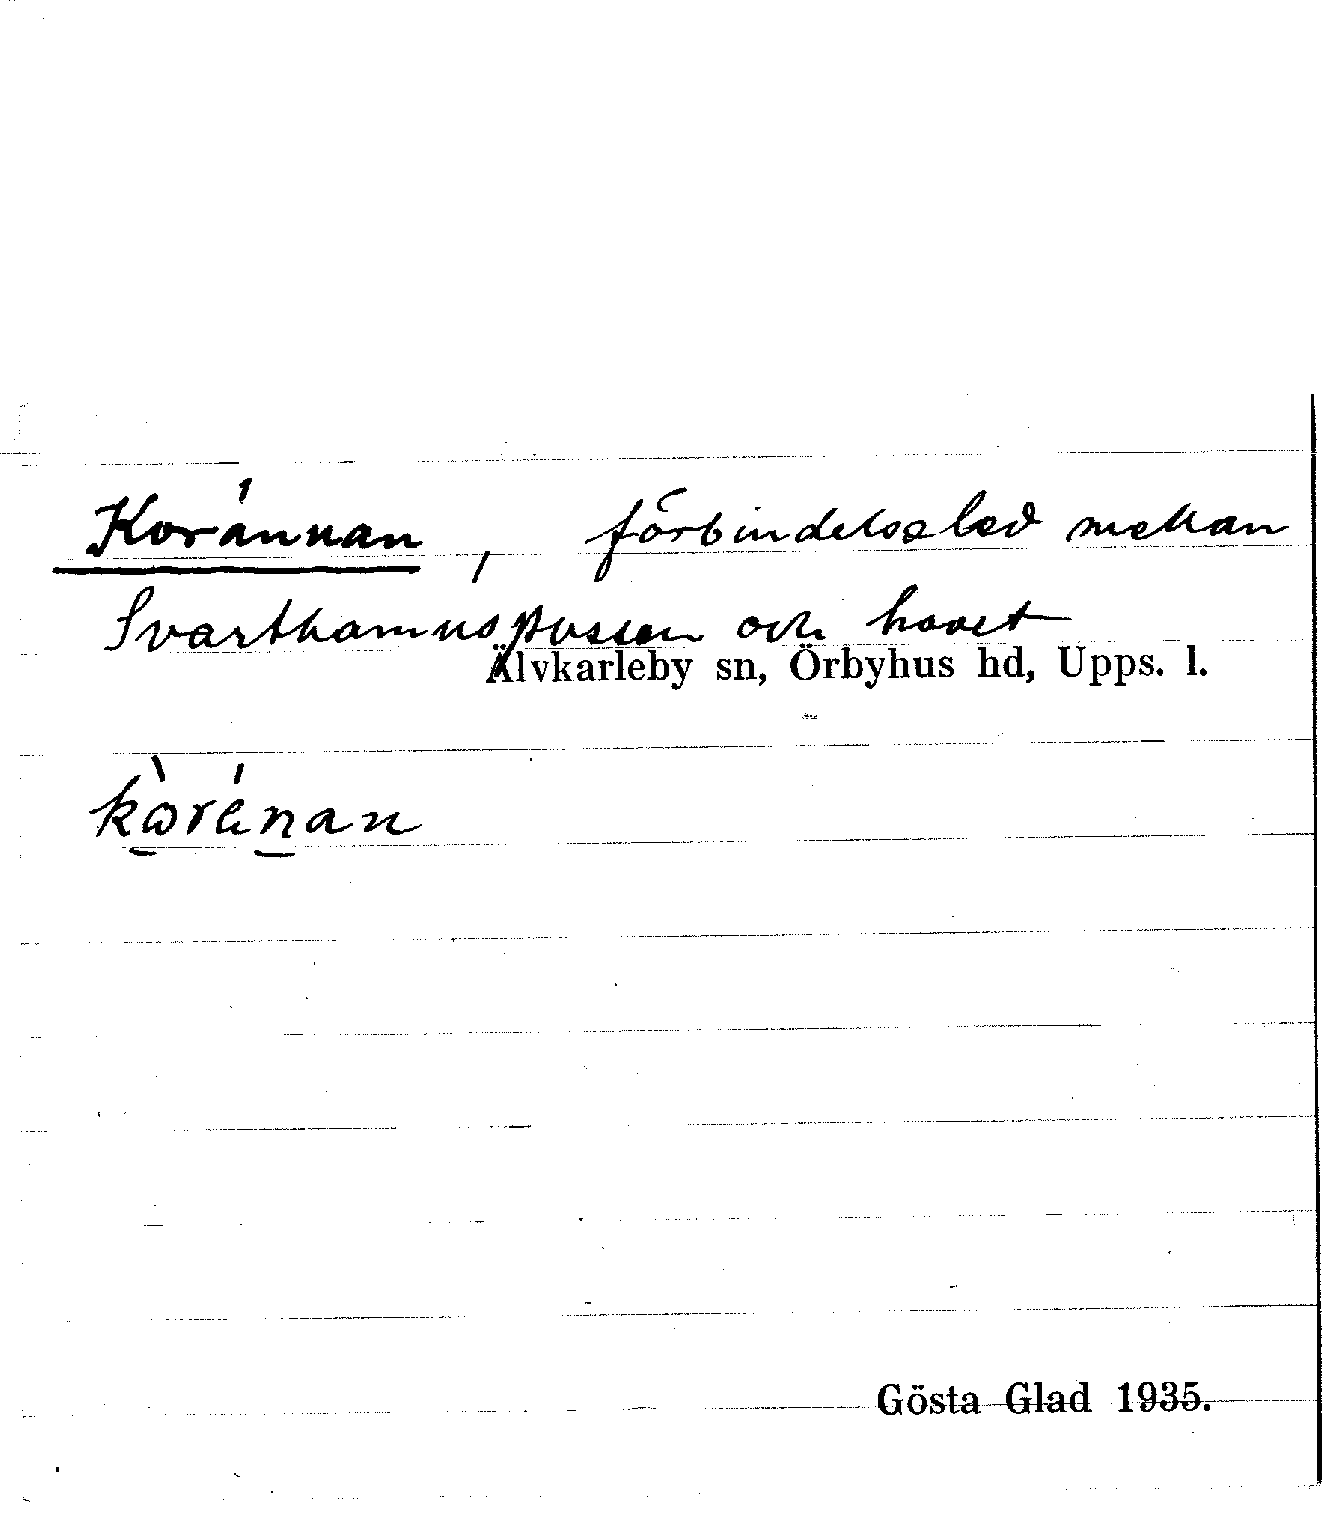 Koránnan, förbindelseled mellan
Svarthamnspussen och havet
Älvkarleby sn, Örbyhus hd, Upps. l.
kὼránan
Gösta Glad 1935.